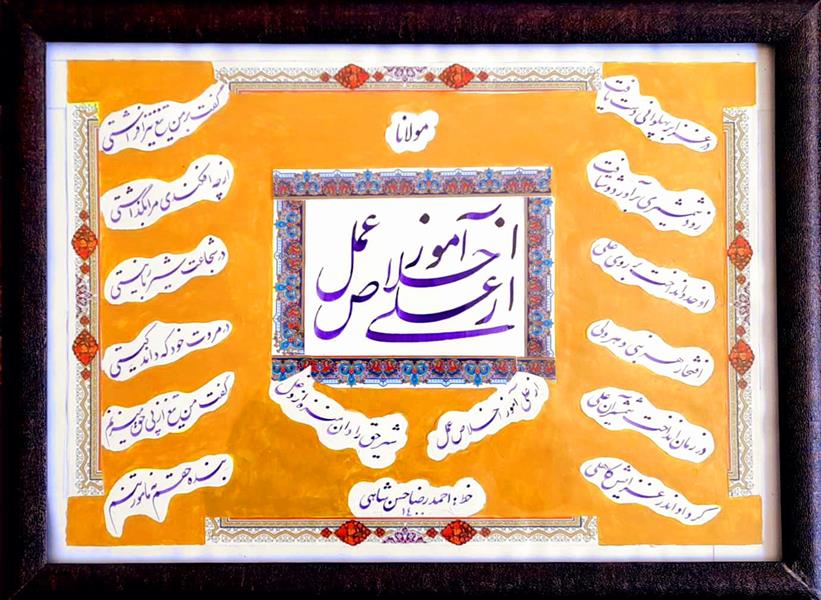 مولانا
از علی آموز اخلاص عمل
از علی آموز اخلاص عمل
شیر حق را دان منزه از دغل
در غزا بر پهلوانی دست یافت
زود شمشیری برآورد و شتافت
او خدو انداخت بر روی علی
افتخار هر نبی و هر ولی
در زمان انداخت شمشیر آن علی
کرد او اندر غزایش کاهلی
گفت بر من تیغ تیز افراشتی
از چه افکندی مرا بگذاشتی
در شجاعت شیر ربانیستی
در مروت خود که داند کیستی
گفت من تیغ از پی حق میزنم
بنده حقم نه مامور تنم
خط: احمدرضا حسن شاهی
۱۴۰۰